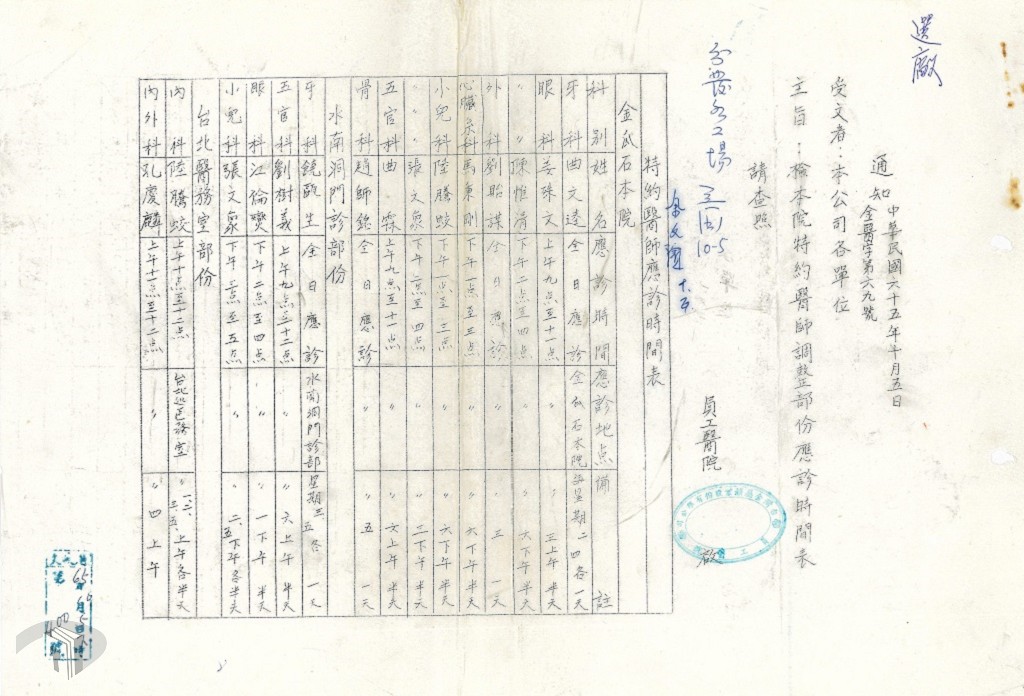 選廠
通知
中華民國六十五年十月五日
金醫字第六九號
受文者：本公司各單位
主旨：檢本院特約醫師調整部份應診時間表
請查照
員工醫院 啟
分發各工場
10-5
十.五
特約醫師應診時間表
科別 姓名 應診時間 應診地点 備註
金瓜石本院
牙科 曲文達 全日應診 金瓜石本院 每星期二四各一天
眼科 姜珠文 上午九点至十一点 〃 〃三上午半天
〃〃 陳惟清 下午二点至四点 〃 〃六下午半天
外科 劉貽謀 全日應診 〃 〃三一天
心臟系科 馬東剛 下午一点至三点 〃 〃六下午半天
小兒科 陸騰蛟 下午一点至三点 〃 〃六下午半天
〃〃 張文泉 下午二点至四点 〃 〃二下午半天
五官科 曲霖 上午九点至十一点 〃 〃六上午半天
骨科 趙師銘 全日應診 〃 〃五一天
水南洞門診部份
牙科 饒毆生 全日應診 水南洞門診部 星期三五各一天
五官科 劉樹義 上午九点至十二点 〃 〃六上午半天
眼科 江倫瓞 下午二点至四点 〃 〃一下午半天
小兒科 張文泉 下午三点至五点 〃 〃二、五下午各半天
台北醫務室部份
內科 陸騰蛟 上午十点至十二点 台北醫務室 〃一、二、三、五、上午各半天
內外科 孔慶麟 上午十一点至十二点 〃 〃四上午